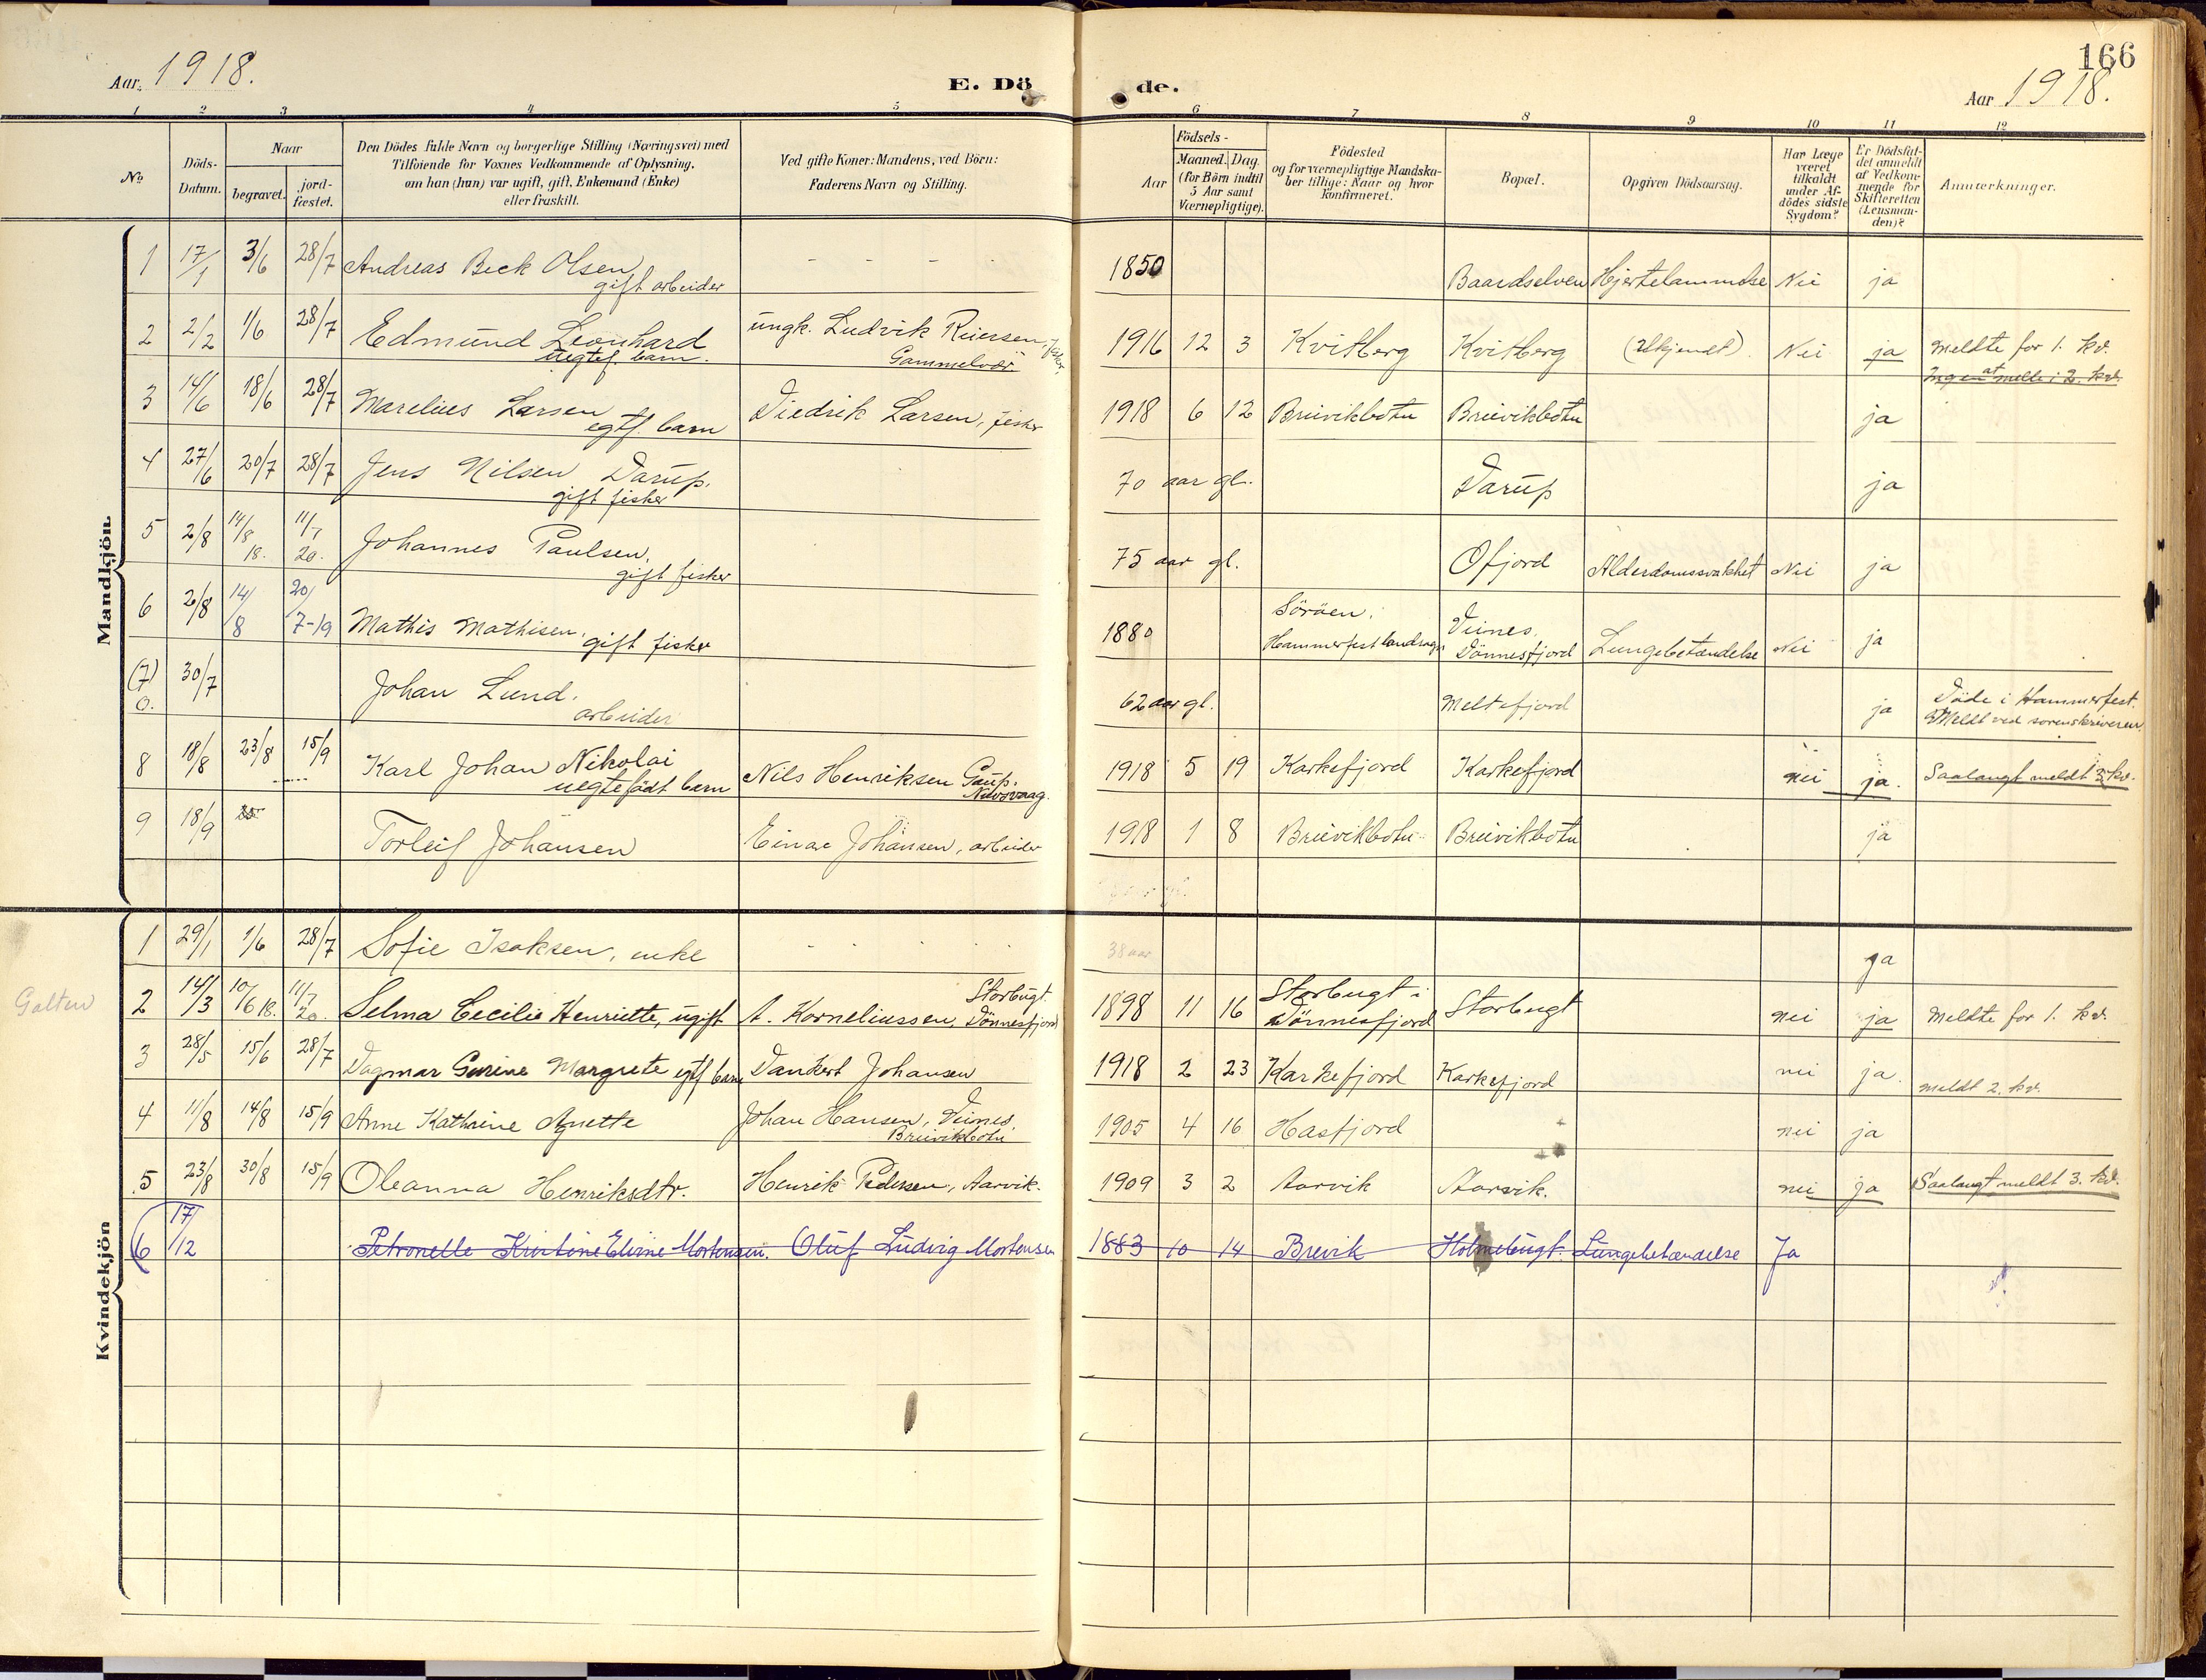 166
Aar 1918.
E. Dö de.
Aar 1918.
1 2 3 4 5 6 7 8 9 10 11 12
No
Döds-Datum.
Naar
begravet.
jord-fæstet.
Den Dödes fulde Navn og borgerlige Stilling (Næringsvei) med
Tilföiende for Voxnes Vedkommende af Oplysning,
om han (hun) var ugift, gift, Enkemand (Enke)
eller fraskilt.
Ved gifte Koner: Mandens, ved Börn:
Faderens Navn og Stilling.
Födsels-
Aar
Maaned. Dag.
(for Börn indtil
5 Aar samt
Værnepligtige).
Födested
og for værnepligtige Mandska-
ber tillige: Naar og hvor
konfirmeret.
Bopæl.
Opgiven Dödsaarsag.
Har Læge
været
tilkaldt
under Af-
dödes sidste
Sygdom?
Er Dödsfal-
det anmeldt
af Vedkom-
mende for
Skifteretten
(Lensman-
den)?
Anmærkninger.
Mandkjön.
1 17/1 3/6 28/7 Andreas Beck Olsen - - - 1850 Baardselven Hjertelammelse Nei ja
gift arbeider
2 2/2 1/6 28/7 Edmund Leonhard ungk. Ludvik Reiersen, fisker, 1916 12 3 Kvitberg Kvitberg (Ukjendt) Nei ja Meldte for 1. kv.
uegtef. barn. Gammelvær Ingen at melde i 2. kv.
3 14/6 18/6 28/7 Marelius Larsen Diedrik Larsen, fisker 1918 6 12 Breivikbotn Breivikbotn ja
egtf. barn
4 27/6 20/7 28/7 Jens Nilsen Darup. 70 aar gl. Darup ja
gift fisker
5 2/8 14/8 18. 11/7 20. Johannes Paulsen. 75 aar gl. Ofjord Alderdomssvakhet Nei ja
gift fisker
6 2/8 14/8 20/7-19 Mathis Mathisen. gift fisker 1880 Söröen, Hammerfest landsogn Veines, Dönnesfjord Lungebetændelse Nei ja
(7) 0. 30/7 Johan Lund. 62 aar gl. Meltefjord ja Döde i Hammerfest.
arbeider Meldt ved sorenskriveren.
8 18/8 23/8 15/9 Karl Johan Nikolai Nils Henriksen Gaup. 1918 5 19 Karkefjord Karkefjord nei ja. Saalangt meldt i 3 kv.
uegtefödt barn
9 18/9 Torleif Johansen Einar Johansen, arbeider 1918 1 8 Breivikbotn Breivikbotn ja
Kvindekjön
1 29/1 1/6 28/7 Sofie Isaksen, enke 38 aar ja
Galten
2 14/3 10/6 18. 11/7 20. Selma Cecilie Henriette, ugift A. Korneliussen, Storbugt. Dönnesfjord 1898 11 16 Storbugt i Dönnesfjord Storbugt nei ja Meldte for 1. kv.
3 28/5 15/6 28/7 Dagmar Gurine Margrete egtf barn Dankert Johansen 1918 2 23 Karkefjord Karkefjord nei ja. meldt 2. kv.
4 11/8 14/8 15/9 Anne Kathrine Agnette Johan Hansen, Veines. Breivikbotn 1905 4 16 Hasfjord nei ja
5 23/8 30/8 15/9 Oleanna Henriksdtr. Henrik Pedersen, Aarvik. 1909 3 2 Aarvik Aarvik. nei ja Saalangt meldt 3. kv.
6 17/12 Petronelle Kristine Elvine Mortensen. Oluf Ludvig Mortensen 1883 10 14 Brevik Holmebugt. Lungebetændelse Ja